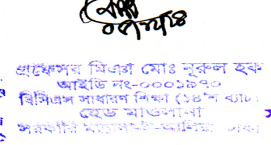 প্রফেসর মিঞা মোঃ নূরুল হক
আইডি নং-০০০১৯৭০
বিসিএস সাধারণ শিক্ষা (১৪'শ ব্যাচ)
হেড মাওলানা
সরকারি মাদ্রাসা-ই-আলিয়া, ঢাকা